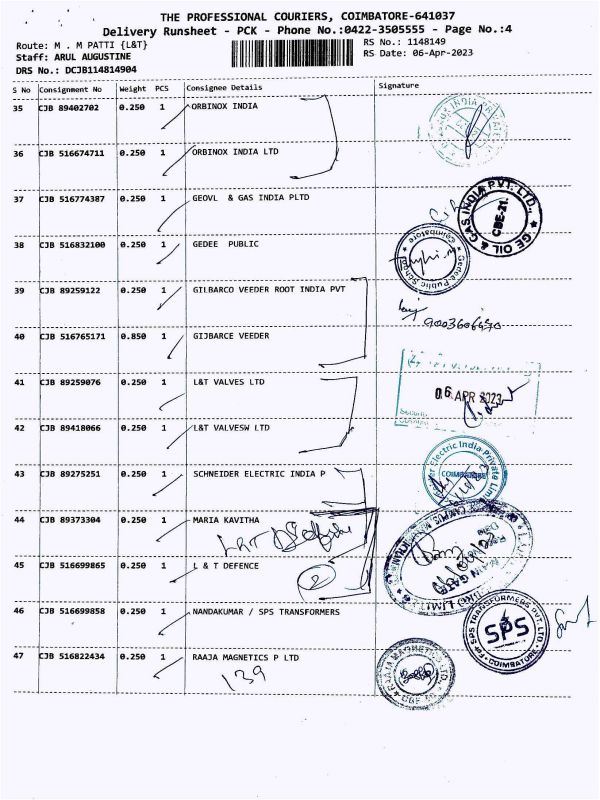 THE PROFESSIONAL COURIERS, COIMBATORE-641037
Delivery Runsheet - PCK - Phone No.:0422-3505555 - Page No.:4
Route: M . M PATTI {L&T)
RS No.: 1148149
Staff: ARUL AUGUSTINE
RS Date: 06-Apr-2023
DRS No.: DCJB114814904
S No Consignment No Weight PCS Consignee Details Signature
35 CJB 89402702 0.250 1 ORBINOX INDIA
36 CJB 516674711 0.250 1 ORBINOX INDIA LTD
37 CJB 516774387 0.250 1 GEOVL & GAS INDIA PLTD
GE OIL & GAS INDIA PVT. LTD.,
CBE-21.
38 CJB 516832100 0.250 1 GEDEE PUBLIC
Gedee Public School
Coimbatore
39 CJB 89259122 0.250 1 GILBARCO VEEDER ROOT INDIA PVT
9003606450
40 CJB 516765171 0.850 1 GIJBARCE VEEDER
41 CJB 89259076 0.250 1 L&T VALVES LTD
06 APR 2023
42 CJB 89418066 0.250 1 L&T VALVESW LTD
43 CJB 89275251 0.250 1 SCHNEIDER ELECTRIC INDIA P
Electric India Private Limi
COIMBATORE
44 CJB 89373304 0.250 1 MARIA KAVITHA
45 CJB 516699865 0.250 1 L & T DEFENCE
2
46 CJB 516699858 0.250 1 NANDAKUMAR / SPS TRANSFORMERS
SPS TRANSFORMERS PVT. LTD.
SPS
COIMBATORE
47 CJB 516822434 0.250 1 RAAJA MAGNETICS P LTD
139